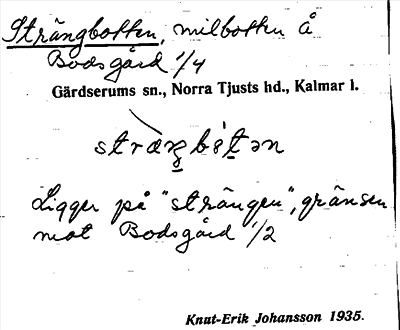 Strängbotten, milbotten å
Bodsgård 1/4
Gärdserums sn., Norra Tjusts hd., Kalmar l.
Ligger på "strängen", gränsen
mot Bodsgård 1/2
Knut-Erik Johansson 1935.